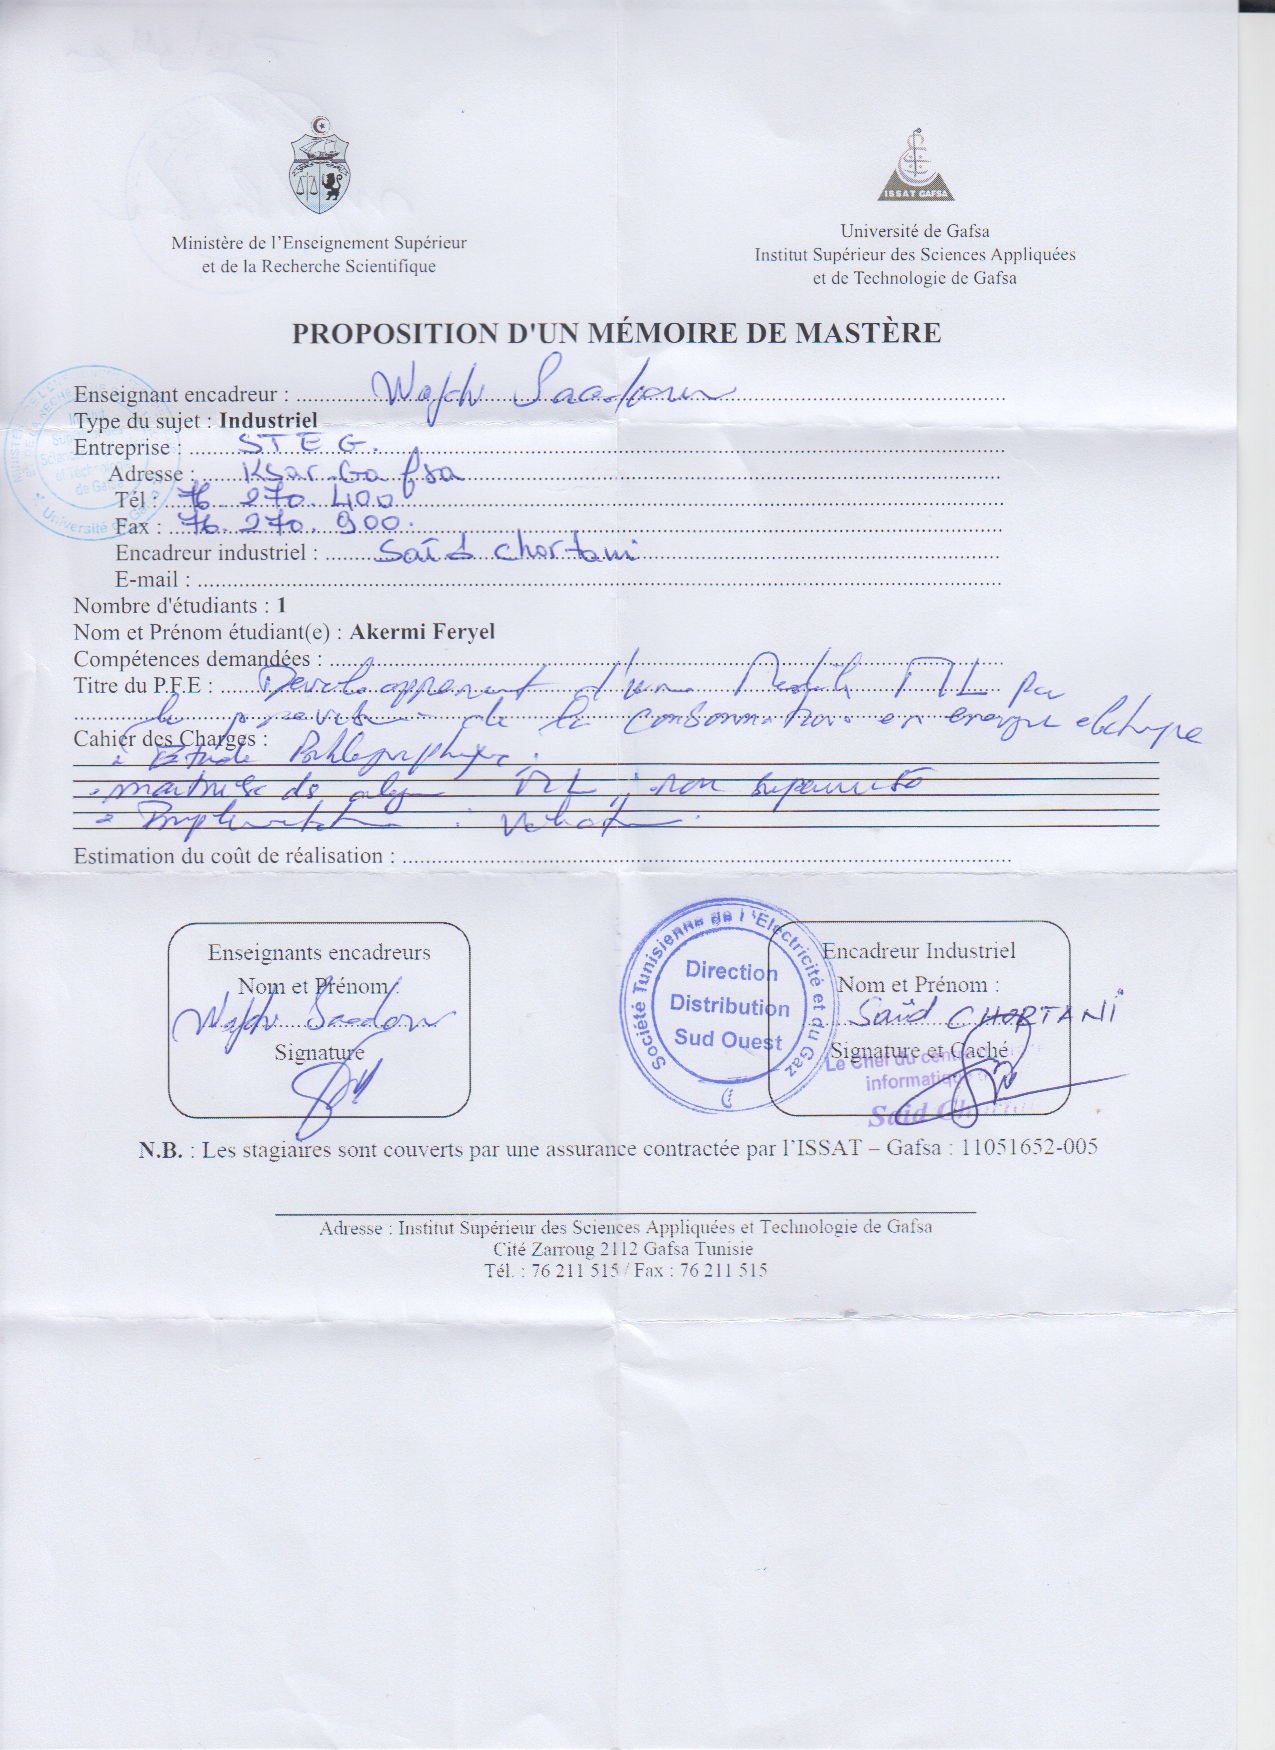 ISSAT GAFSA
Ministère de l'Enseignement Supérieur
et de la Recherche Scientifique
Université de Gafsa
Institut Supérieur des Sciences Appliquées
et de Technologie de Gafsa
PROPOSITION D'UN MÉMOIRE DE MASTÈRE
Enseignant encadreur : Wajdi Saadoun
Type du sujet : Industriel
Entreprise : STEG.
Adresse : Ksar Gafsa
Tél : 76 270 400
Fax : 76. 270. 900.
Encadreur industriel : Saïd Chortani
E-mail :
Nombre d'étudiants : 1
Nom et Prénom étudiant(e) : Akermi Feryel
Compétences demandées :
Titre du P.F.E : Developpement d'un ML
la de la consommation en energie
Cahier des Charges :
Etude
de ML, non supervisé
Implementation
Estimation du coût de réalisation :
Enseignants encadreurs
Nom et Prénom :
Wajdi Saadoun
Signature
Société Tunisienne de l'Electricité et du Gaz
Direction
Distribution
Sud Ouest
Encadreur Industriel
Nom et Prénom :
Saïd CHORTANI
Signature et Caché
Le Chef du centre
informatique
Saïd Chortani
N.B. : Les stagiaires sont couverts par une assurance contractée par l'ISSAT – Gafsa : 11051652-005
Adresse : Institut Supérieur des Sciences Appliquées et Technologie de Gafsa
Cité Zarroug 2112 Gafsa Tunisie
Tél. : 76 211 515 / Fax : 76 211 515